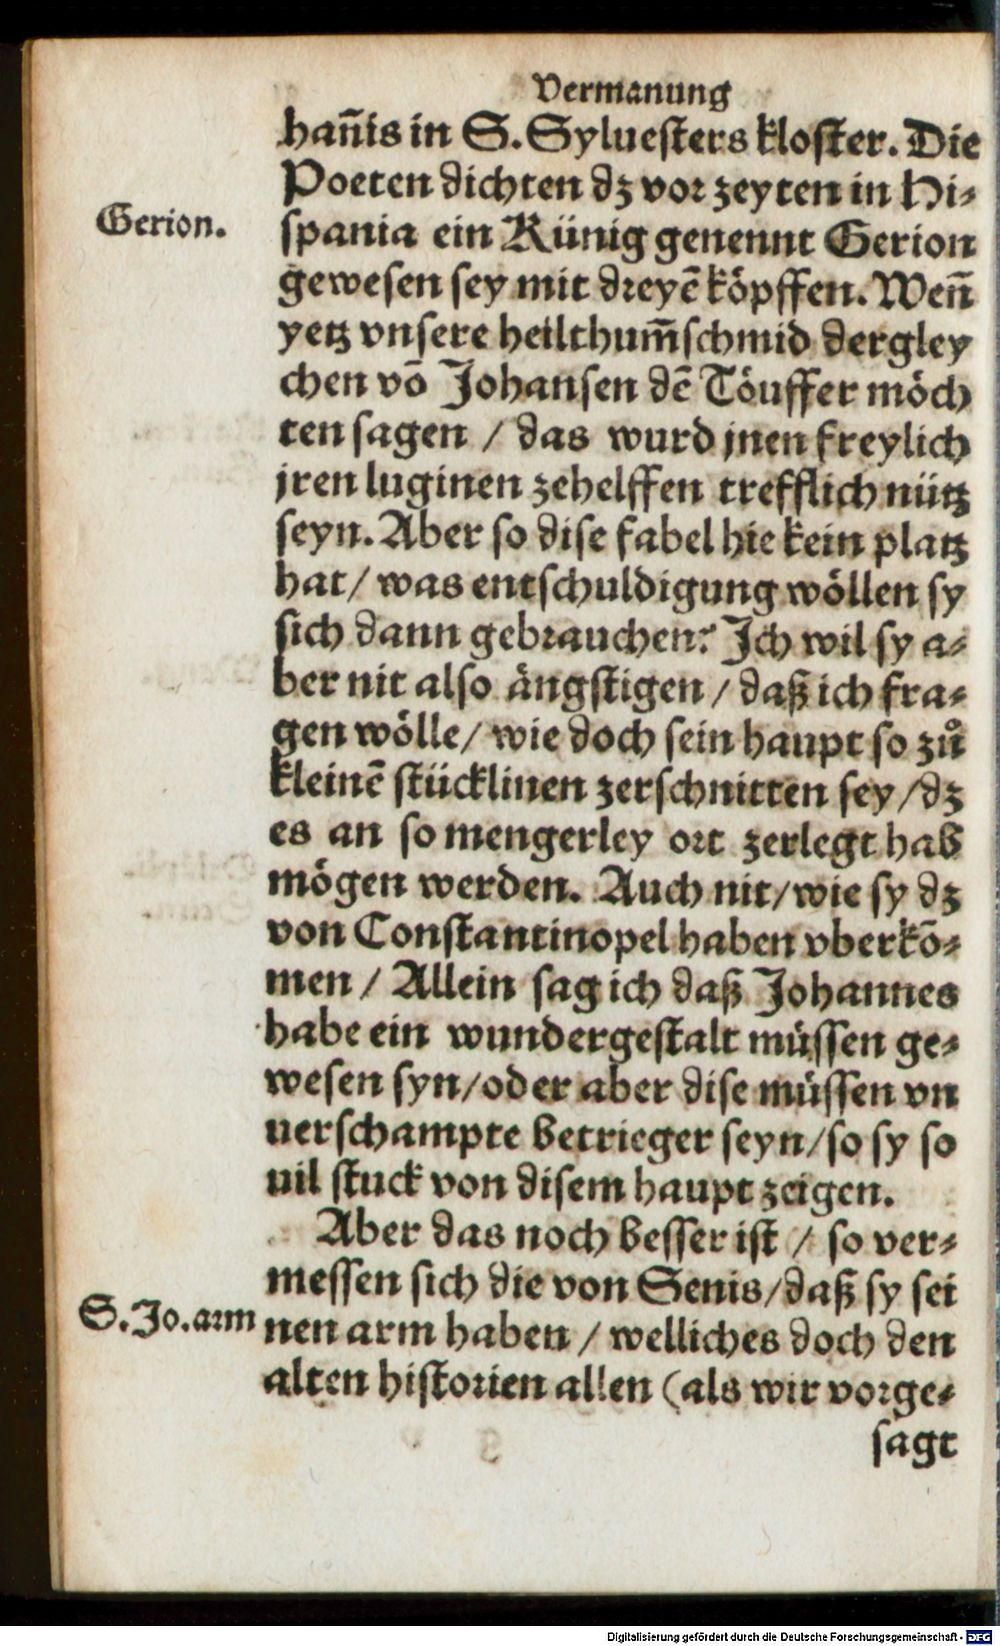 Vermanung
han̄is in S. Syluesters kloster. Die
Poeten dichten dz vor zeyten in Hi⸗
Gerion.
spania ein Künig genennt Gerion
gewesen sey mit dreyē köpffen. Wen̄
yetz vnsere heilthum̄schmid dergley
chen vō Johansen dē Töuffer möch
ten sagen / das wurd jnen freylich
jren luginen zehelffen trefflich nütz
seyn. Aber so dise fabel hie kein platz
hat / was entschuldigung wöllen sy
sich dann gebrauchen? Ich wil sy a⸗
ber nit also ängstigen / daß ich fra⸗
gen wölle / wie doch sein haupt so zů
kleinē stücklinen zerschnitten sey / dz
es an so mengerley ort zerlegt hab
mögen werden. Auch nit / wie sy dz
von Constantinopel haben vberkō⸗
men / Allein sag ich daß Johannes
habe ein wundergestalt müssen ge⸗
wesen syn / oder aber dise müssen vn
uerschampte betrieger seyn / so sy so
uil stuck von disem haupt zeigen.
Aber das noch besser ist / so ver⸗
messen sich die von Senis / daß sy sei
S. Jo. arm
nen arm haben / welliches doch den
alten historien allen (als wir vorge⸗
sagt
Digitalisierung gefördert durch die Deutsche Forschungsgemeinschaft - DFG